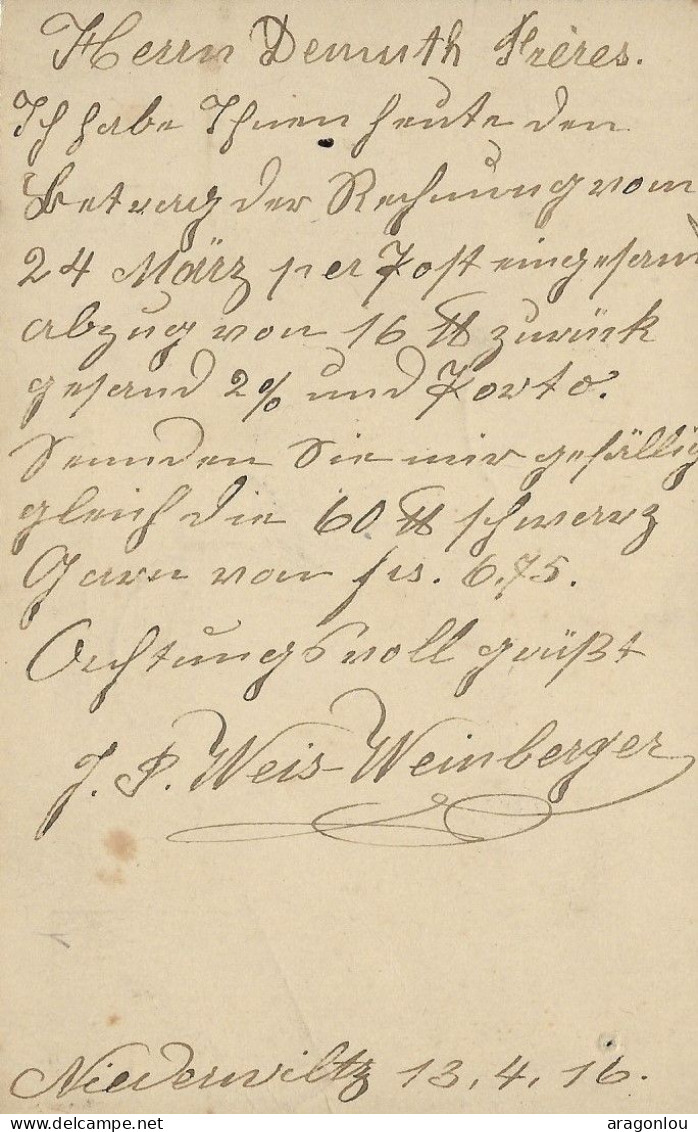 Herrn Demuth Frères.
Ich habe Ihnen heute den
Betrag der Rechnung vom
24 März per Post eingesand
abzug von 16 ℔ zurück
gesand 2% und Porto.
Sennden Sie mir gefällig
gleich die 60 ℔ schwarz
Garn von frs. 6.75.
Achtungsvoll grüßt
J. P. Weis-Weinberger
Niederwiltz 13.4.16.
aragonlou